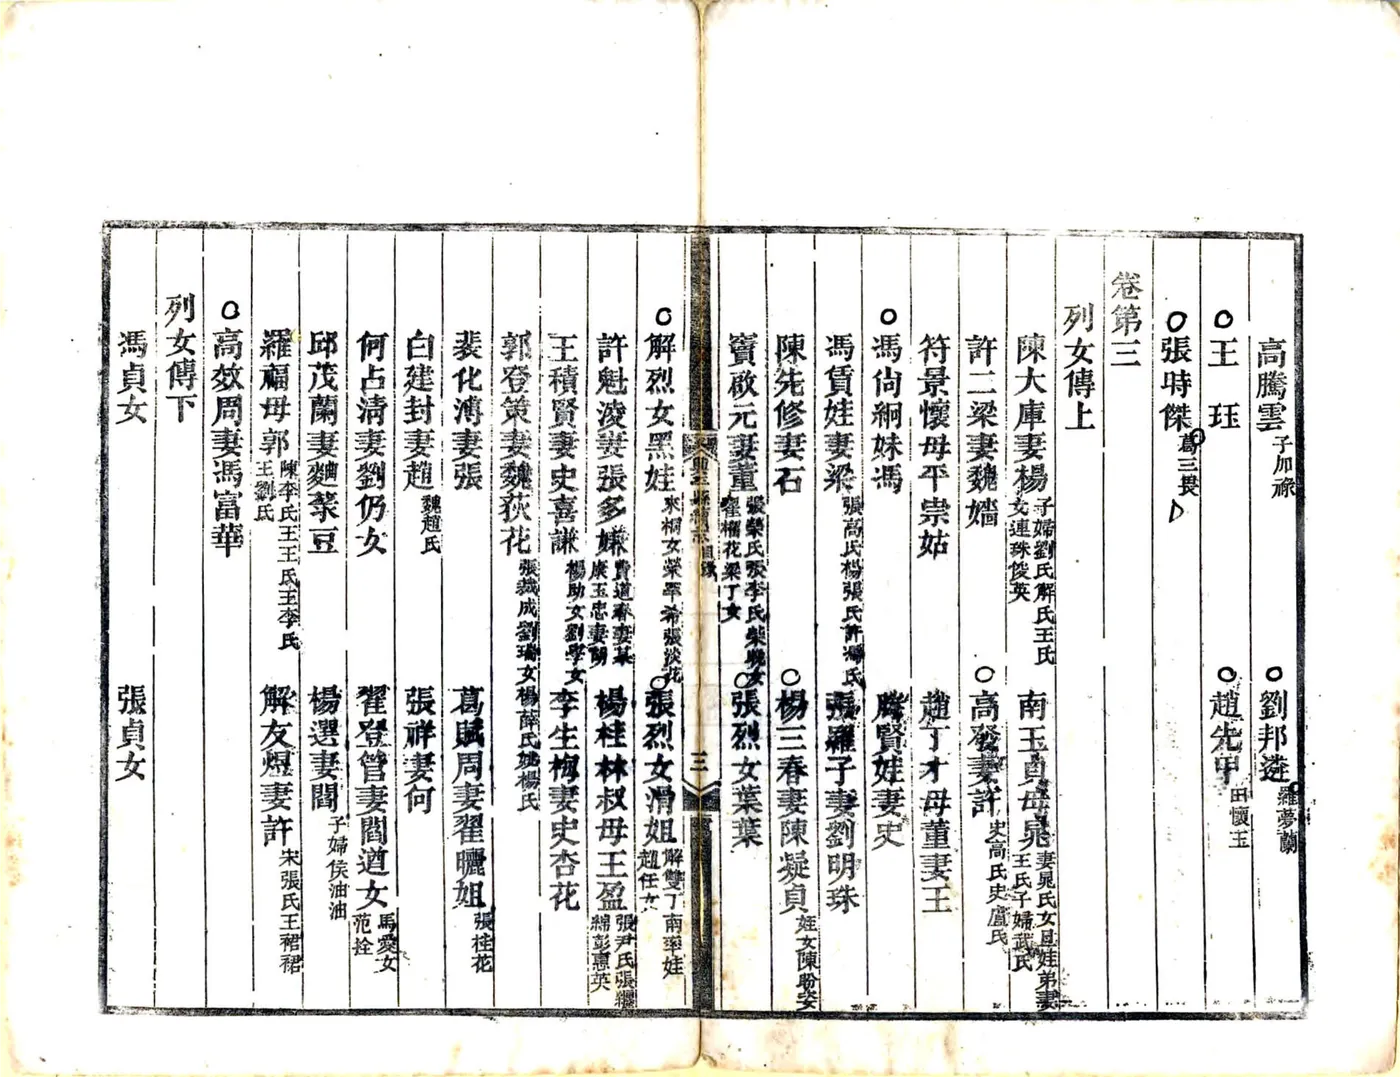 高騰雲 子加祿 劉邦遴 羅夢蘭
王 珏 趙先甲 田懷玉
張時傑 葛三畏
卷第三
列女傳上
陳大庫妻楊 子婦劉氏解氏王氏 女連珠俊英 南玉貞母晁 妻晁氏女且娃弟妻 王氏子婦武氏
許二梁妻魏嬙 高發妻許 史高氏史盧氏
符景懷母平崇姑 趙丁才母董妻王
馮尙絅妹馮 騰賢娃妻史
馮賃娃妻梁 張高氏楊張氏許馮氏 張羅子妻劉明珠
陳先修妻石 楊三春妻陳凝貞 姪女陳盼姿
竇啟元妻董 張榮氏張李氏榮 女 翟榴花梁丁女 張烈女葉葉
三
解烈女黑娃 來桐女榮平希張淡花 張烈女滑姐 解雙丁南率娃 趙任女
許魁淩妻張多嫌 賈道春妻綦 康玉忠妻 楊桂林叔母王盈 張尹氏張纙 綿彭惠英
王積賢妻史喜謙 楊助女劉學女 李生梅妻史杏花
郭登策妻魏荻花 張義成劉瑞女楊薛氏姚楊氏
裴化溥妻張 葛賦周妻翟驪姐 張桂花
白建封妻趙 魏趙氏 張祥妻何
何占清妻劉仍女 翟登管妻閻遒女 馬愛女 范拴
邱茂蘭妻麯菉豆 楊選妻閻 子婦侯油油
羅福母郭 陳李氏王王氏王李氏 王劉氏 解友煜妻許 宋張氏王裙裙
高效周妻馮富華
列女傳下
馮貞女 張貞女